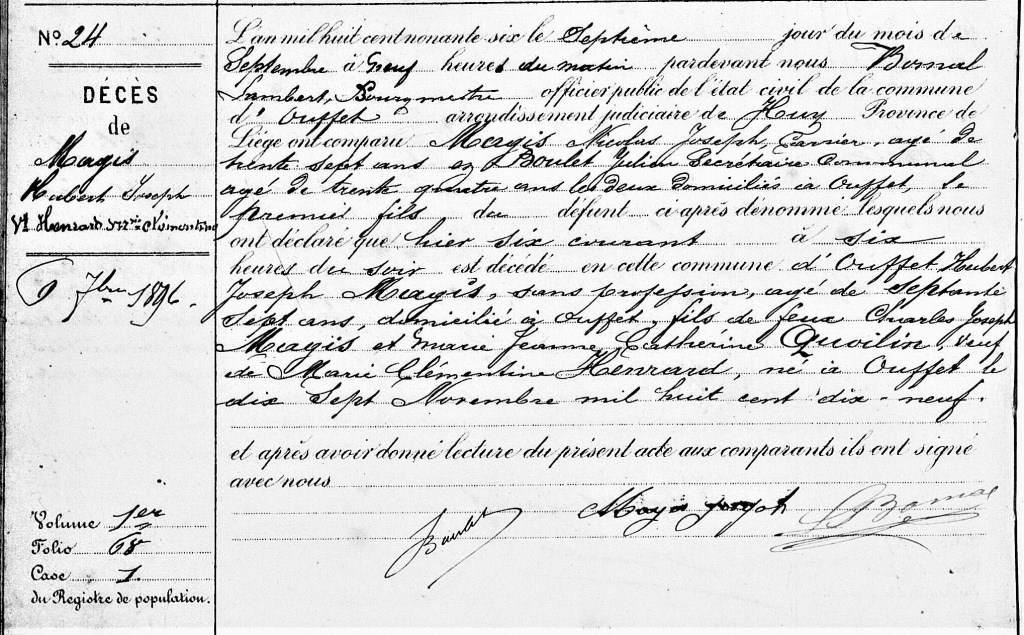 N° 24
DÉCÈS
de
Magis
Hubert Joseph
Vf Henrard Mie Clémentine
6 7bre 1896.
Volume 1er
Folio 68
Case 1.
du Registre de population.
L'an mil huit cent nonante-six le Septième jour du mois de
Septembre à neuf heures du matin pardevant nous Bomal
Lambert, Bourgmestre officier public de l'état civil de la commune
d'Ouffet arrondissement judiciaire de Huy Province de
Liége ont comparu Magis Nicolas Joseph, Carrier, agé de
trente sept ans et Boulet Julien Secrétaire Communal
agé de trente quatre ans les deux domiciliés à Ouffet, le
premier fils du défunt ci-après dénommé lesquels nous
ont déclaré que hier six courant à six
heures du soir est décédé en cette commune d'Ouffet Hubert
Joseph Magis, sans profession, agé de Septante
Sept ans, domicilié à Ouffet, fils de feux Charles Joseph
Magis et Marie Jeanne Catherine Quoilin, veuf
de Marie Clémentine Henrard, né à Ouffet le
dix Sept Novembre mil huit cent dix-neuf.
et après avoir donné lecture du présent acte aux comparants ils ont signé
avec nous
Boulet Magis L Bomal